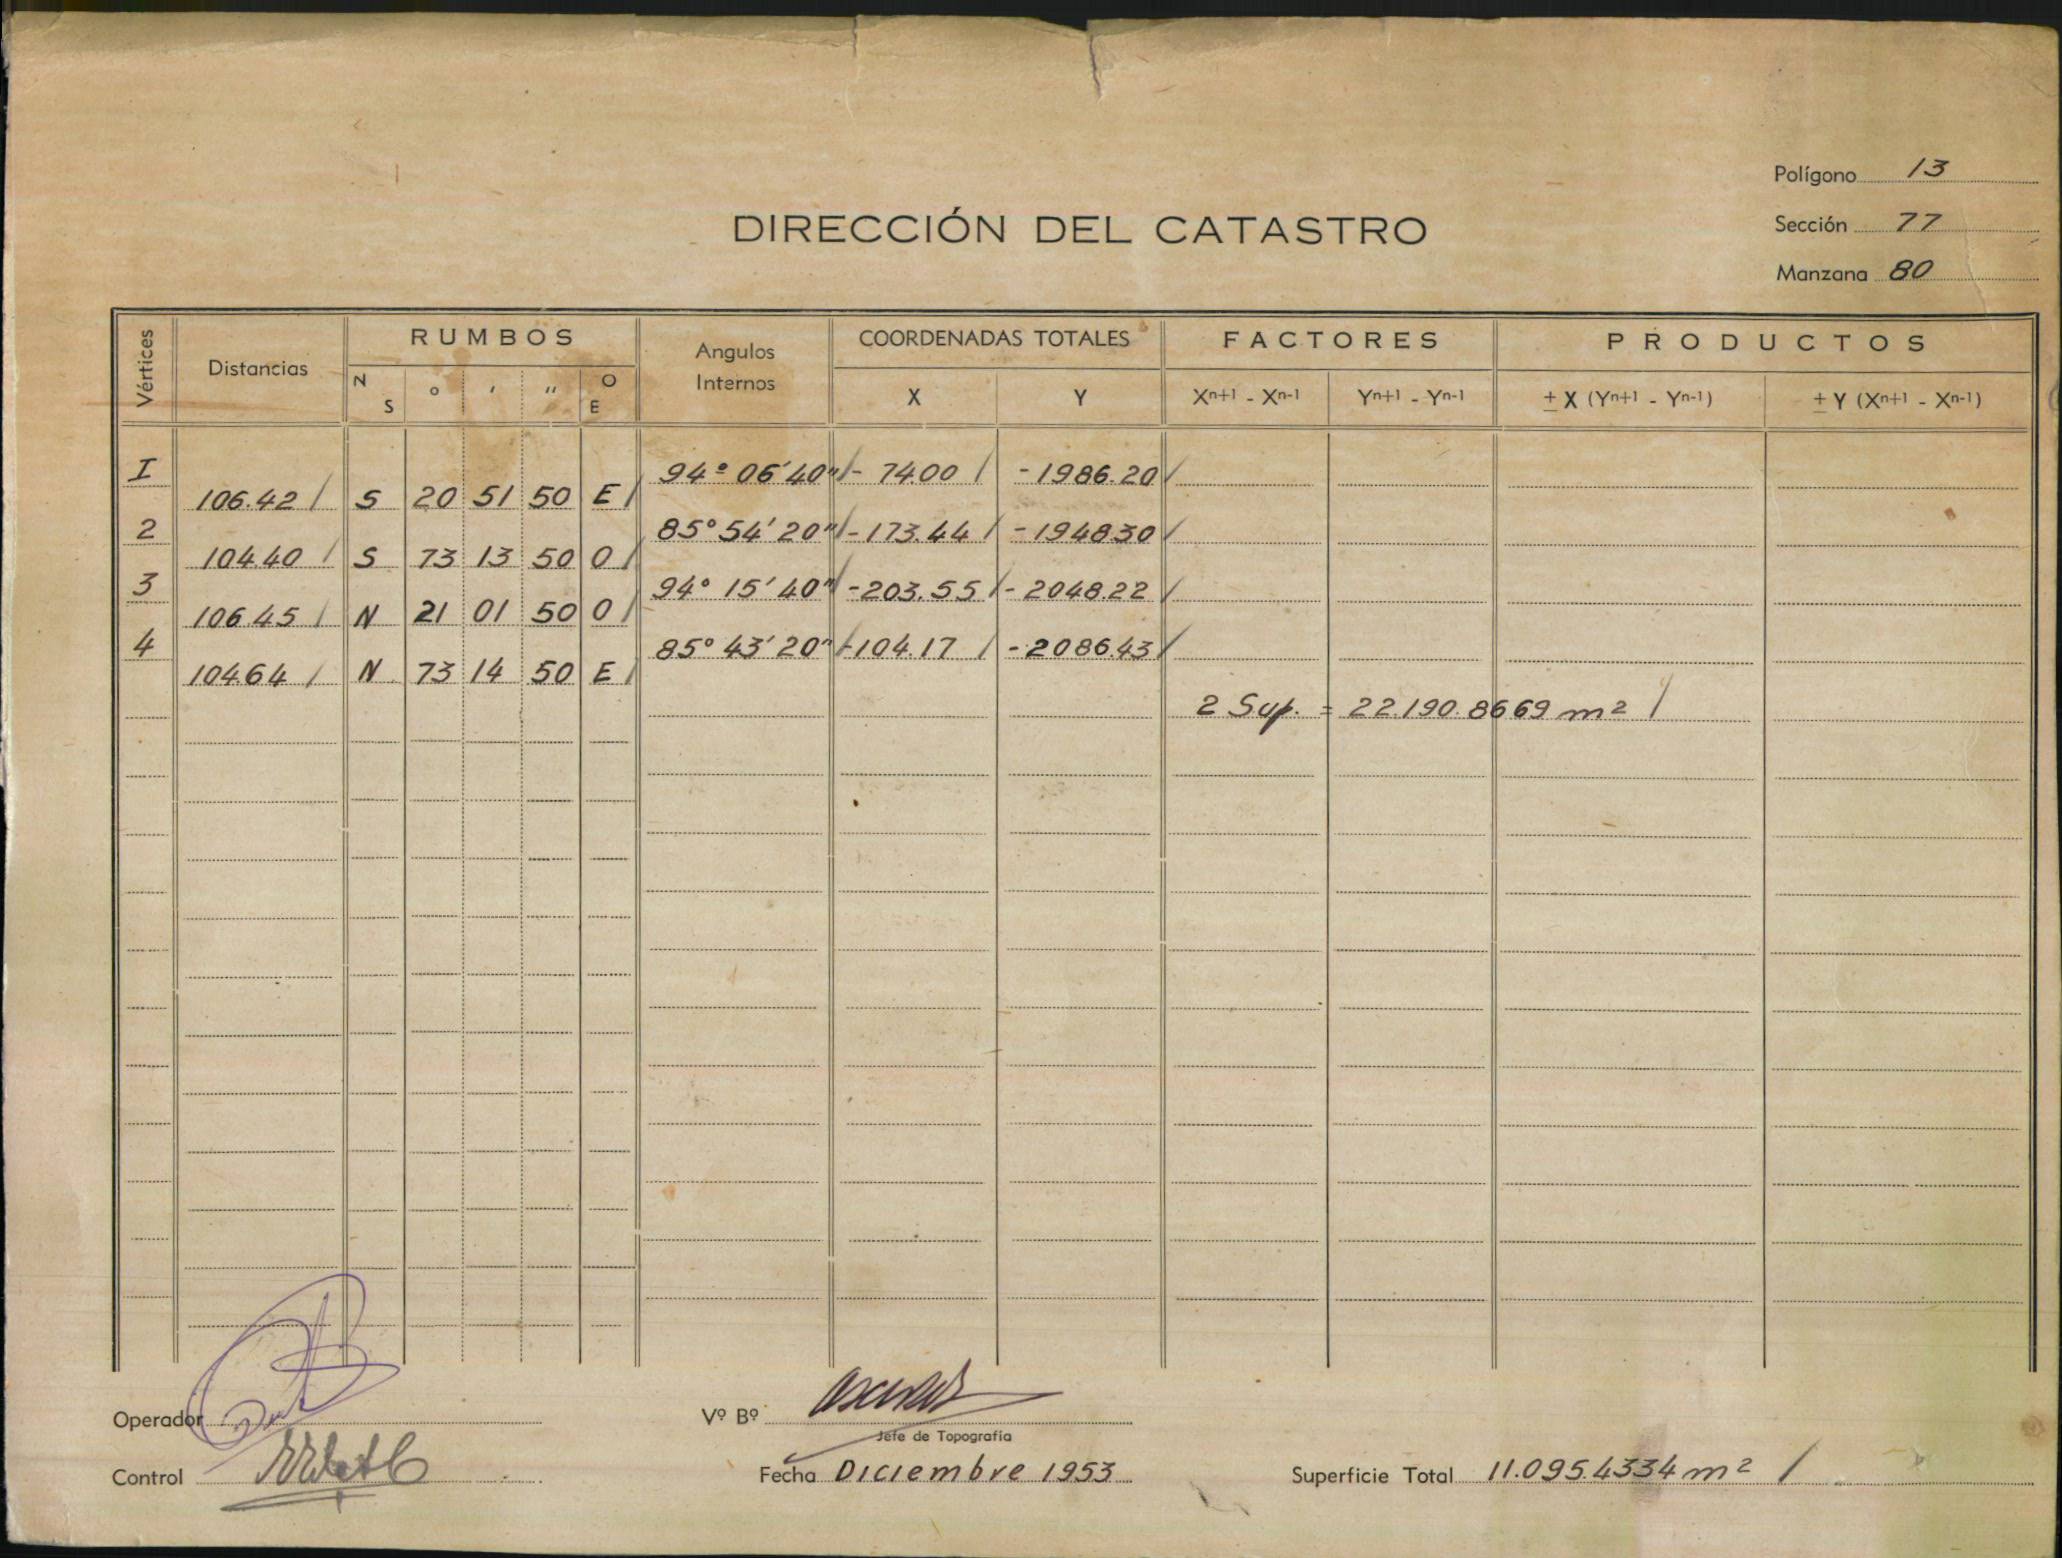 Polígono 13
DIRECCIÓN DEL CATASTRO
Sección 77
Manzana 80
Vértices
Distancias
RUMBOS
N S ° ' " O E
Angulos Internos
COORDENADAS TOTALES
X Y
FACTORES
Xn+1 - Xn-1 Yn+1 - Yn-1
PRODUCTOS
± X (Yn+1 - Yn-1) ± Y (Xn+1 - Xn-1)
I 94º 06' 40" / - 74.00 / - 1986.20 /
106.42 / S 20 51 50 E /
2 85° 54' 20" / - 173.44 / - 1948.30 /
104.40 / S 73 13 50 O /
3 94° 15' 40" / - 203.55 / - 2048.22 /
106.45 / N 21 01 50 O /
4 85° 43' 20" / - 104.17 / - 2086.43 /
104.64 / N 73 14 50 E /
2 Sup. = 22.190.8669 m² /
Operador
Vº Bº
Jefe de Topografía
Control
Fecha Diciembre 1953
Superficie Total 11.095.4334 m² /